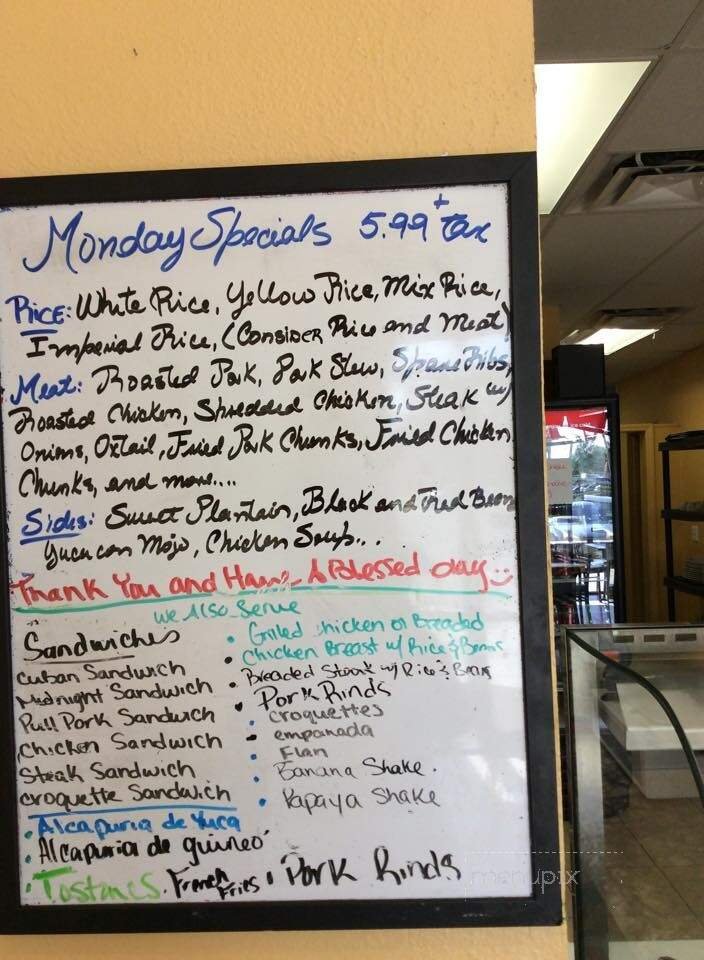 Monday Specials 5.99 + tax
Rice: White Rice, Yellow Rice, Mix Rice,
Imperial Rice, (Consider Rice and Meat)
Meat: Roasted Pork, Pork Stew, Spare Ribs,
Roasted Chicken, Shredded Chicken, Steak w/
Onions, Oxtail, Fried Pork Chunks, Fried Chicken
Chunks, and more....
Sides: Sweet Plantain, Black and Red Beans
Yuca con Mojo, Chicken Soup...
Thank You and Have A Blessed day
We Also Serve
Sandwiches
Cuban Sandwich
Midnight Sandwich
Pull Pork Sandwich
Chicken Sandwich
Steak Sandwich
Croquette Sandwich
• Grilled chicken or Breaded
• Chicken Breast w/ Rice & Beans
• Breaded Steak w/ Rice & Beans
• Pork Rinds
• croquettes
- empanada
• Flan
• Banana Shake.
• Papaya Shake
• Alcapuria de Yuca
• Alcapuria de guineo
• Tostones • French Fries • Pork Rinds
menupix